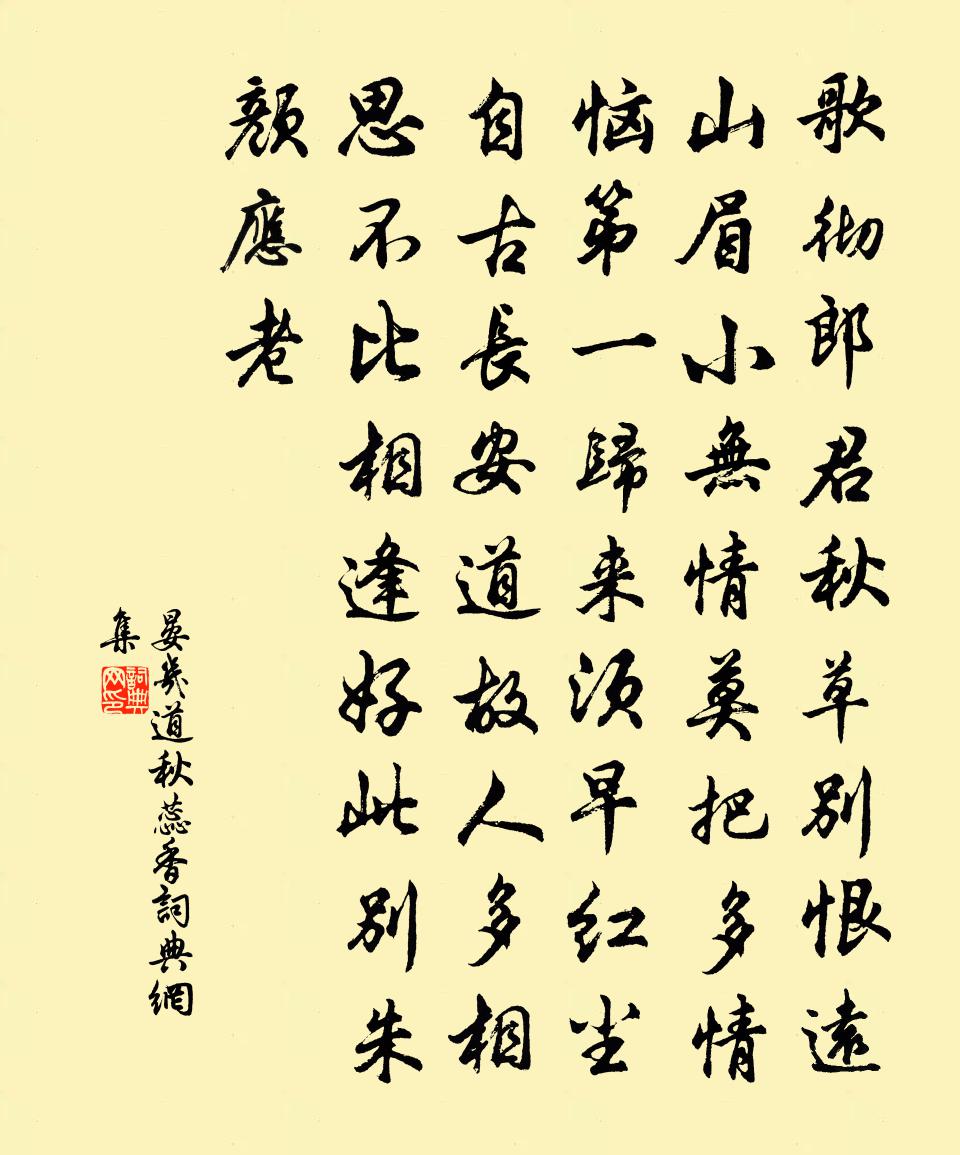 歌彻郎君秋草別恨遠
山眉小無情莫把多情
恼第一歸来须早红尘
自古長安道故人多相
思不比相逢好此别朱
颜應老
晏幾道秋蕊香詞典網
集
詞典網印